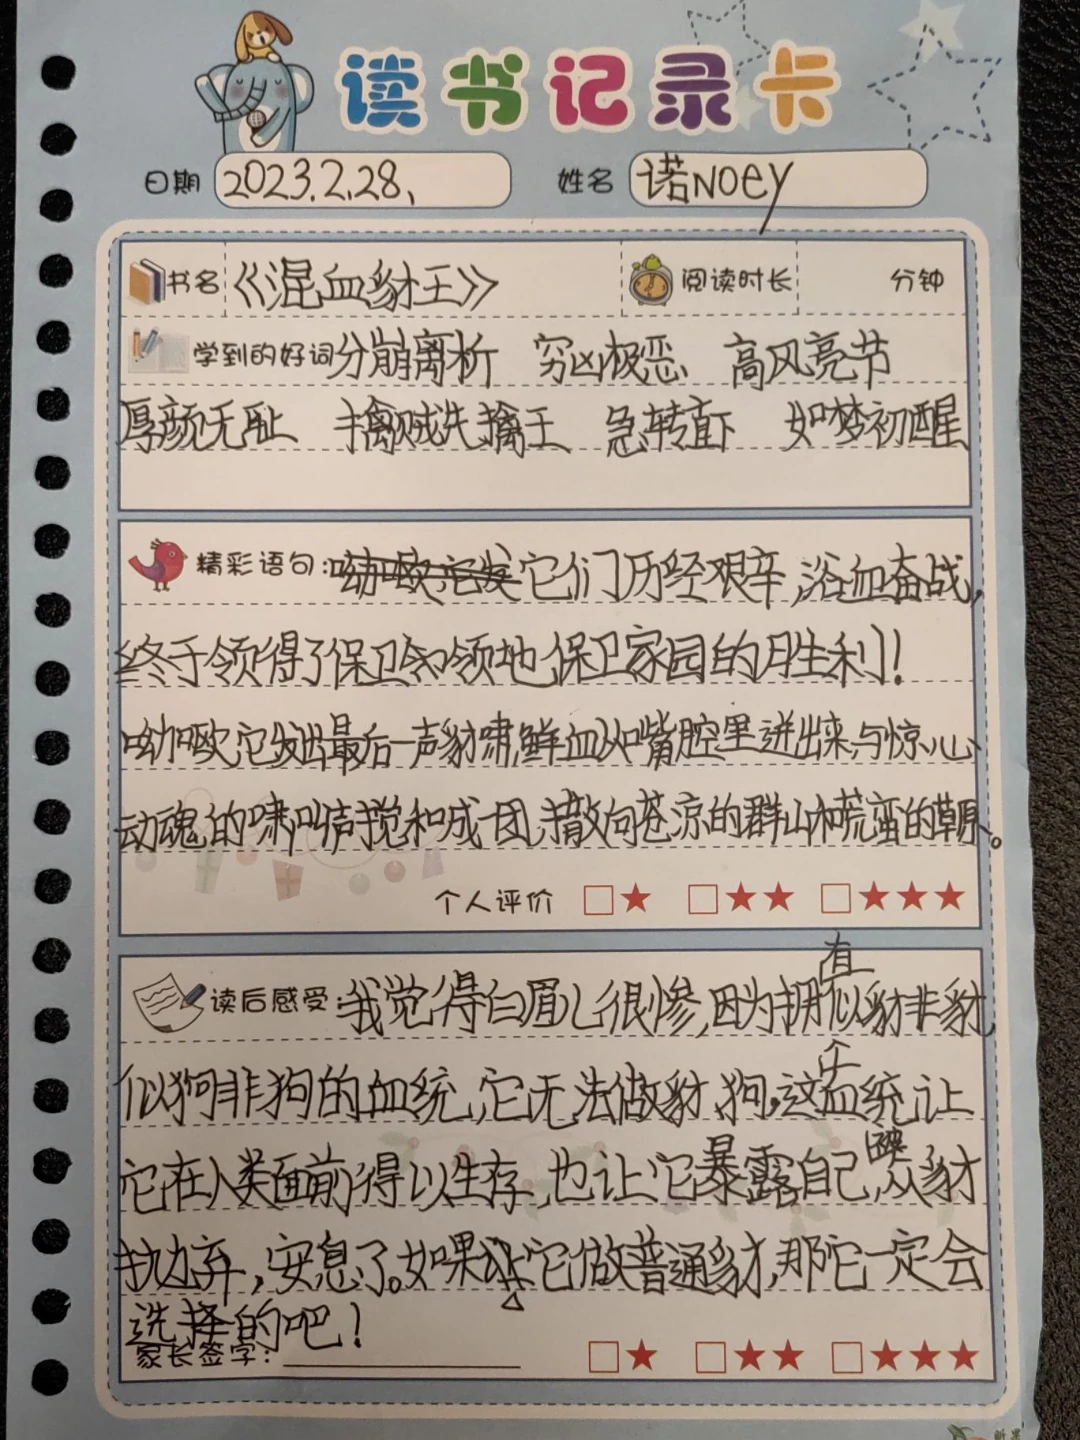 读书记录卡
日期 2023.2.28、 姓名 诺Noey
书名 《混血豺王》 阅读时长 分钟
学到的好词 分崩离析 穷凶极恶 高风亮节
厚颜无耻 擒贼先擒王 急转直下 如梦初醒
精彩语句: 呦呦它发 它们历经艰辛,浴血奋战,
终于领得了保卫领地,保卫家园的胜利!
呦呦它发出最后一声豺啸,鲜血从嘴腔里迸出来,与惊心
动魄的啸叫声搅和成一团,撒向苍凉的群山和荒蛮的草原。
个人评价 ★ ★★ ★★★
读后感受: 我觉得白眉儿很惨,因为拥有似豺非豺,
似狗非狗的血统,它无法做豺、狗。这个血统,让
它在人类面前得以生存,也让它暴露自己,被众豺
抛弃,安息了。如果让它做普通豺,那它一定会
选择的吧!
家长签字: ★ ★★ ★★★